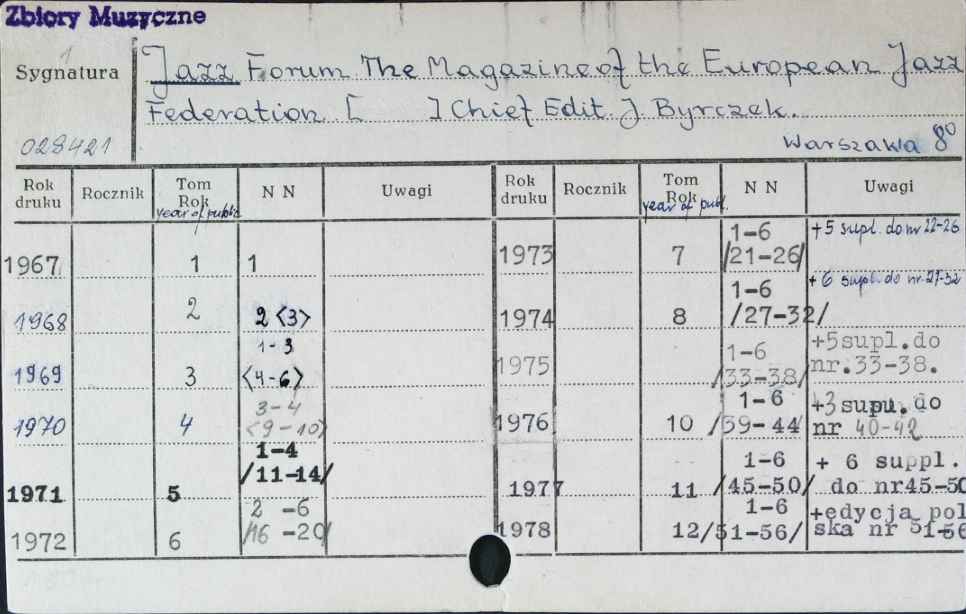 Zbiory Muzyczne
1
Sygnatura
Jazz Forum The Magazine of the European Jazz
Federation [ ] Chief Edit. J. Byrczek.
028421
Warszawa 8°
Rok druku Rocznik Tom Rok year of public. N N Uwagi
1967 1 1
1968 2 2 <3>
1969 3 1-3 <4-6>
1970 4 3-4 <9-10>
1971 5 1-4 /11-14/
1972 6 2 -6 /16 -20/
Rok druku Rocznik Tom Rok year of publ. N N Uwagi
1973 7 1-6 /21-26/ +5 supl. do nr 22-26
1974 8 1-6 /27-32/ + 6 supl. do nr. 27-32
1975 1-6 /33-38/ +5supl.do nr.33-38.
1976 10 1-6 /39-44/ +3supl.do nr 40-42
1977 11 1-6 /45-50/ + 6 suppl. do nr45-50
1978 12 1-6 /51-56/ +edycja pol ska nr 51-56